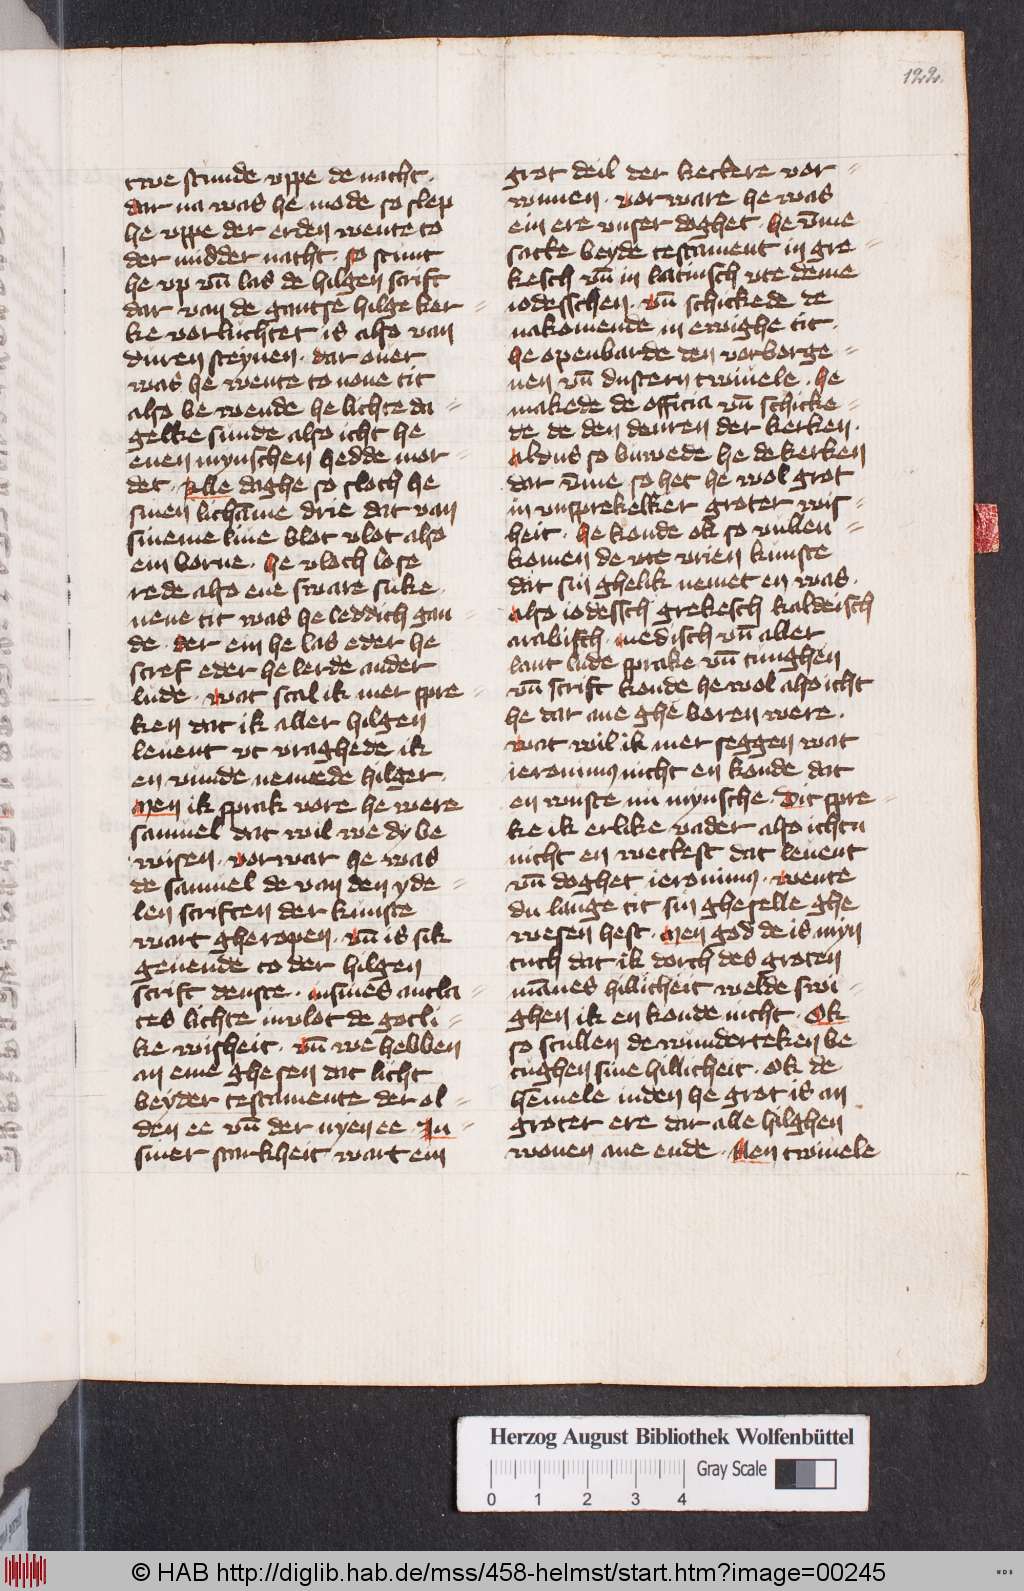 122.
twe stunde vppe de nacht ·
dar na was he mode so slep
he vppe der erden wente to
der midder nacht · so stunt
he vp vn̄ las de hilgen scrift
dar van de gantse hilge ker =
ke vorluchtet is also van
duren steynen · dar ouer
was he wente to none tit
also be wende he lichte da =
gelke sunde also icht he
enen mynschen hedde mor =
det · Alle daghe so sloch he
sinen lichāme drie dat van
sineme liue blot vlot also
ein borne · he vloch lose
rede also ene sware suke ·
nene tit was he leddich gan =
de · der ein he las eder he
scref eder he lerde ander
lude · wat scal ik mer spre =
ken dat ik aller hilgen
leuent vt vraghede ik
en vunde nemede hilger ·
Men ik sprak vore he were
samuel dat wil we dy be
wisen · vorwar he was
de samuel de van den yde =
len scriften der kunste
wart gheropen · vn̄ is sik
geuende to der hilgen
scrift denste · insines antla =
tes lichte invlot de gotli =
ke wisheit · vn̄ we hebben
an eme ghesen dat licht
beyder testamente der ol =
den ee vn̄ der nyen ee · In =
siner starkheit wart ein
grot deil der keckere vor =
wunnen · vorware he was
ein ere vnser doghet · he v̄me
satte beyde testament in gre =
kesch vn̄ in latinsch vte deme
iodesschen · vn̄ schickede de
nakomende in ewighe tit ·
he openbarde den vorborge =
nen vn̄ dustern twiuele · he
makede de officia vn̄ schicke =
de de den denren der kerken ·
aldus so buwede he de kerken
dar v̄me so het he wol grot
in vnsprekelker groter wis =
heit · he konde ok so vullen =
komen de vte vrien kunste
dat sin ghelik nemet en was ·
also iodessch grekesch kaldeisch
arabisch · medisch vn̄ aller
lant lude sprake vn̄ tunghen
vn̄ scrift konde he wol also icht
he dar ane ghe boren were ·
wat wil ik mer seggen wat
ieronimus nicht en konde dat
en wuste nu mynsche · Dit spre =
ke ik erlike vader also ichtu
nicht en weckest dat leuent
vn̄ doghet ieronimus · wente
du lange tit sin gheselle ghe
wesen hest · Men god de is myn
tuch dat ik dorch des groten
mānes hillicheit welde swi =
ghen ik en konde nicht · Ok
so scullen de wunderteken be
tughen sine hillicheit · Ok de
hēmele inden he grot is an
groter ere dar alle hilghen
wonen ane ende · Men twiuele
Herzog August Bibliothek Wolfenbüttel
Gray Scale
0 1 2 3 4
© HAB http://diglib.hab.de/mss/458-helmst/start.htm?image=00245